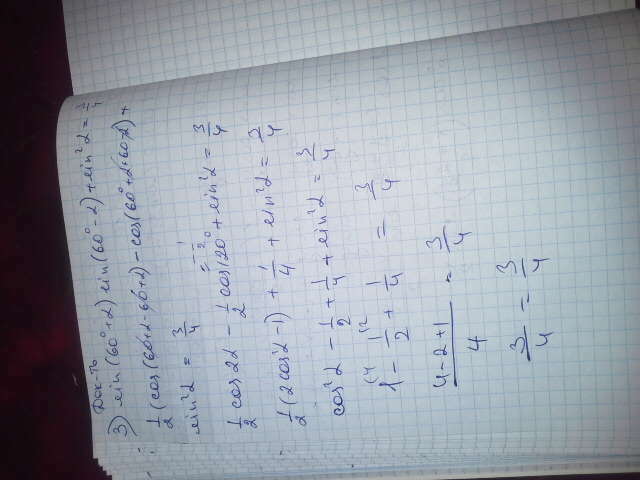 Док-ть
3) sin(60°+α) sin(60°-α)+sin²α = 3/4
1/2 (cos(60+α-60+α) - cos(60°+α+60-α)+
sin²α = 3/4
= -1/2
1/2 cos2α - 1/2 cos120° + sin²α = 3/4
1/2 (2cos²α-1) + 1/4 + sin²α = 3/4
cos²α - 1/2 + 1/4 + sin²α = 3/4
1 - 1/2 + 1/4 = 3/4
(4-2+1)/4 = 3/4
3/4 = 3/4